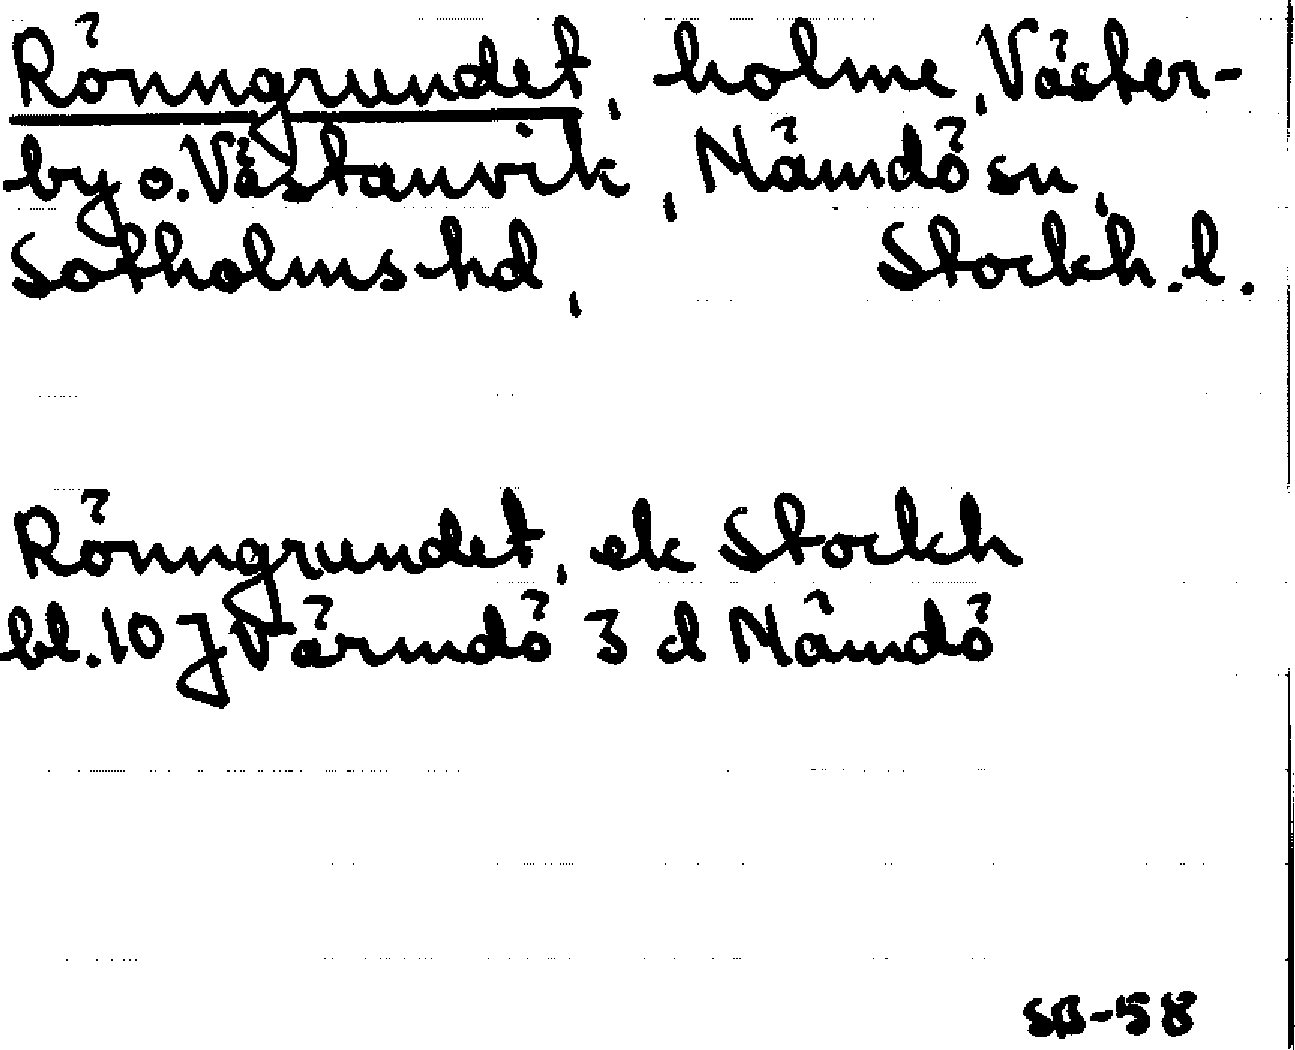 Rönngrundet, holme, Väster-
by o. Västanvik, Nämdö sn,
Sotholms hd, Stockh. l.
Rönngrundet, ek Stockh
bl. 10 J Värmdö 3 d Nämdö
SB-58